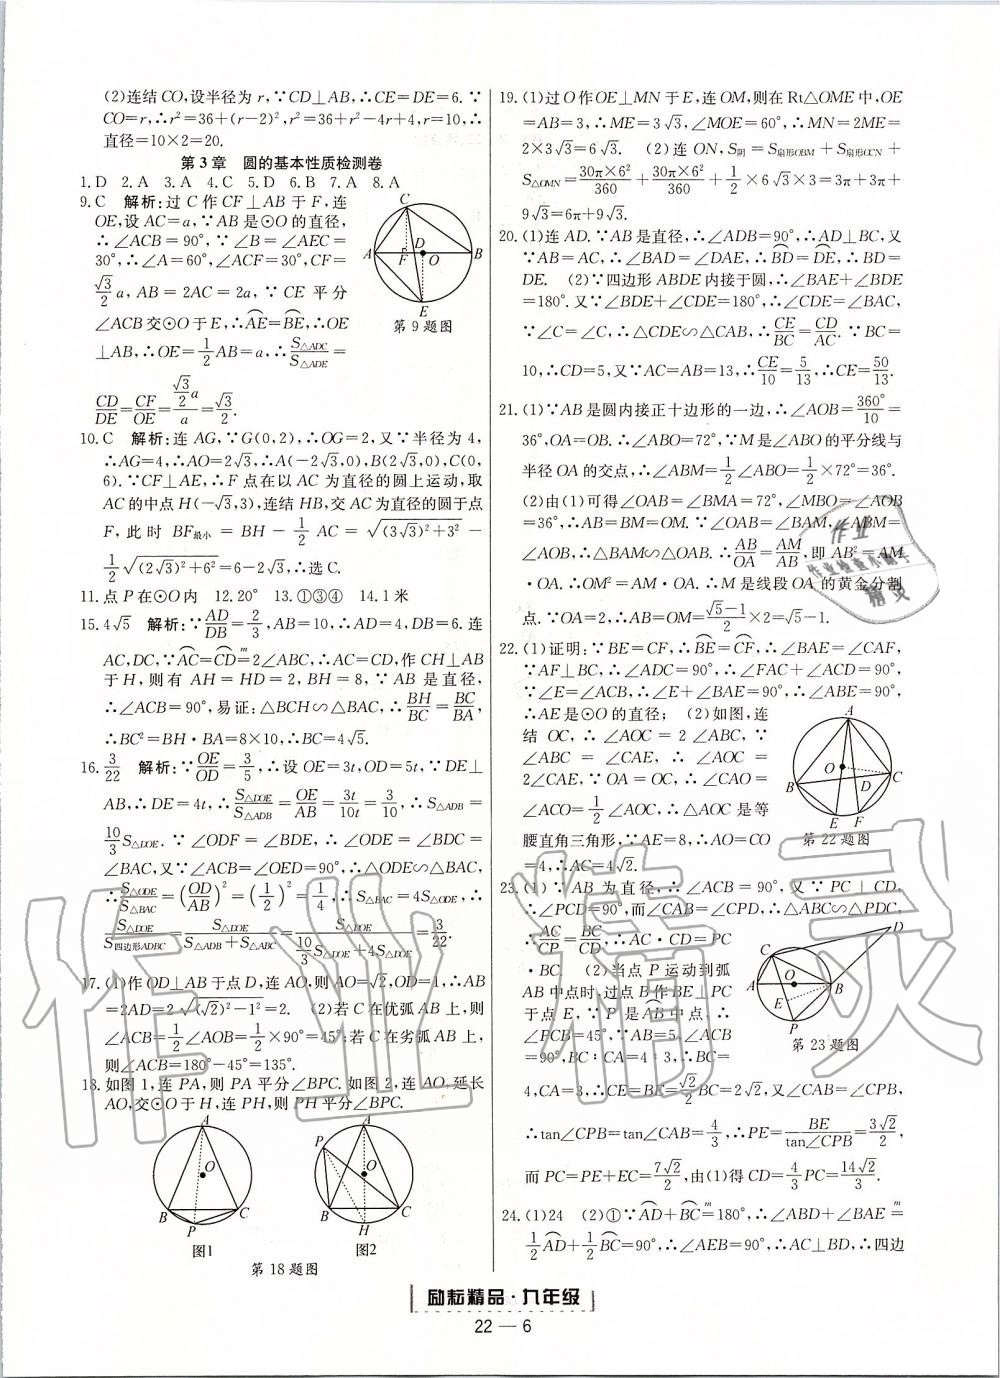 (2)连结CO,设半径为r,∵CD⊥AB,∴CE=DE=6.∵
CO=r,∴r²=36+(r-2)²,r²=36+r²-4r+4,r=10,∴
直径=10×2=20.
第3章 圆的基本性质检测卷
1.D 2.A 3.A 4.C 5.D 6.B 7.A 8.A
9.C 解析:过C作CF⊥AB于F,连
OE,设AC=a,∵AB是⊙O的直径,
∴∠ACB=90°,∵∠B=∠AEC=
30°,∴∠A=60°,∠ACF=30°,CF=
√3/2 a,AB=2AC=2a,∵CE平分
∠ACB交⊙O于E,∴AE=BE,∴OE
⊥AB,∴OE=1/2AB=a,∴S△ADC/S△ADE=
CD/DE=CF/OE=(√3/2 a)/a=√3/2.
第9题图
10.C 解析:连AG,∵G(0,2),∴OG=2,又∵半径为4,
∴AG=4,∴AO=2√3,∴A(-2√3,0),B(2√3,0),C(0,
6).∵CF⊥AE,∴F点在以AC为直径的圆上运动,取
AC的中点H(-√3,3),连结HB,交AC为直径的圆于点
F,此时BF最小=BH-1/2AC=√((3√3)²+3²)-
1/2√((2√3)²+6²)=6-2√3,∴选C.
11.点P在⊙O内 12.20° 13.①③④ 14.1米
15.4√5 解析:∵AD/DB=2/3,AB=10,∴AD=4,DB=6.连
AC,DC,∵AC=CD m=2∠ABC,∴AC=CD,作CH⊥AB
于H,则有AH=HD=2,BH=8,∵AB是直径,
∴∠ACB=90°,易证:△BCH∽△BAC,∴BH/BC=BC/BA,
∴BC²=BH·BA=8×10,∴BC=4√5.
16.3/22 解析:∵OE/OD=3/5,∴设OE=3t,OD=5t,∵DE⊥
AB,∴DE=4t,∴S△DOE/S△ADB=OE/AB=3t/10t=3/10,∴S△ADB=
10/3 S△DOE.∵∠ODF=∠BDE,∴∠ODE=∠BDC=
∠BAC,又∵∠ACB=∠OED=90°,∴△ODE∽△BAC,
∴S△ODE/S△BAC=(OD/AB)²=(1/2)²=1/4,∴S△BAC=4S△ODE,∴
S△DOE/S四边形ADBC=S△DOE/(S△ADB+S△ABC)=S△DOE/(10/3 S△DOE+4S△DOE)=3/22.
17.(1)作OD⊥AB于点D,连AO,则AO=√2,OD=1,∴AB
=2AD=2√((√2)²-1²)=2. (2)若C在优弧AB上,则
∠ACB=1/2∠AOB=1/2×90°=45°;若C在劣弧AB上,
则∠ACB=180°-45°=135°.
18.如图1,连PA,则PA平分∠BPC.如图2,连AO,延长
AO,交⊙O于H,连PH,则PH平分∠BPC.
图1
图2
第18题图
19.(1)过O作OE⊥MN于E,连OM,则在Rt△OME中,OE
=AB=3,∴ME=3√3,∠MOE=60°,∴MN=2ME=
2×3√3=6√3. (2)连ON,S阴=S扇形OBM+S扇形OCN+
S△OMN=30π×6²/360+30π×6²/360+1/2×6√3×3=3π+3π+
9√3=6π+9√3.
20.(1)连AD.∵AB是直径,∴∠ADB=90°,∴AD⊥BC,又
∵AB=AC,∴∠BAD=∠DAE,∴BD=DE,∴BD=
DE. (2)∵四边形ABDE内接于圆,∴∠BAE+∠BDE
=180°.又∵∠BDE+∠CDE=180°,∴∠CDE=∠BAC,
∵∠C=∠C,∴△CDE∽△CAB,∴CE/BC=CD/AC.∵BC=
10,∴CD=5,又∵AC=AB=13,∴CE/10=5/13,∴CE=50/13.
21.(1)∵AB是圆内接正十边形的一边,∴∠AOB=360°/10=
36°,OA=OB.∴∠ABO=72°,∵M是∠ABO的平分线与
半径OA的交点,∴∠ABM=1/2∠ABO=1/2×72°=36°.
(2)由(1)可得∠OAB=∠BMA=72°,∠MBO=∠AOB
=36°,∴AB=BM=OM.∵∠OAB=∠BAM,∠ABM=
∠AOB,∴△BAM∽△OAB.∴AB/OA=AM/AB,即AB²=AM
·OA.∴OM²=AM·OA.∴M是线段OA的黄金分割
点.∵OA=2,∴AB=OM=(√5-1)/2×2=√5-1.
22.(1)证明:∵BE=CF,∴BE=CF,∴∠BAE=∠CAF,
∵AF⊥BC,∴∠ADC=90°,∴∠FAC+∠ACD=90°,
∵∠E=∠ACB,∴∠E+∠BAE=90°,∴∠ABE=90°,
∴AE是⊙O的直径; (2)如图,连
结OC,∴∠AOC=2∠ABC,∵
∠ABC=∠CAE,∴∠AOC=
2∠CAE,∵OA=OC,∴∠CAO=
∠ACO=1/2∠AOC,∴△AOC是等
腰直角三角形,∵AE=8,∴AO=CO
=4,∴AC=4√2.
第22题图
23.(1)∵AB为直径,∴∠ACB=90°,又∵PC⊥CD,
∴∠PCD=90°,而∠CAB=∠CPD,∴△ABC∽△PDC,
∴AC/CP=BC/CD,∴AC·CD=PC
·BC. (2)当点P运动到弧
AB中点时,过点B作BE⊥PC
于点E,∵P是AB中点,∴
∠PCB=45°,∵AB=5,∠ACB
=90°,BC∶CA=4∶3,∴BC=
4,CA=3,∴CE=BE=√2/2 BC=2√2,又∠CAB=∠CPB,
∴tan∠CPB=tan∠CAB=4/3,∴PE=BE/tan∠CPB=3√2/2,
而PC=PE+EC=7√2/2,由(1)得CD=4/3PC=14√2/3.
第23题图
24.(1)24 (2)①∵AD+BC m=180°,∴∠ABD+∠BAE m=
1/2AD+1/2BC=90°,∴∠AEB=90°,∴AC⊥BD,∴四边
励耘精品·九年级
22—6
作业精灵
作业
作业检查小助手
精灵